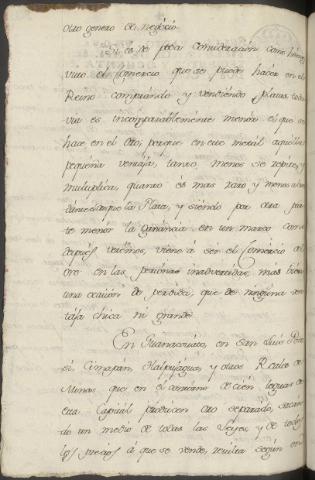 otro genero de negocio.
Si es de poca consideracion como hemos
visto el comercio que se puede hacer en el
Reino comprando y vendiendo platas, toda
via es incomparablemente menor el que se
hace en el Oro, porque en este metal aquella
pequeña ventaja, tanto menos se repite, y
multiplica, quanto es mas raro y menos abun
dante que la Plata, y siendo por otra par
te menor la ganancia en un marco como
despues veremos, viene à ser el Comercio del
oro en las personas inadvertidas, mas bien
una ocasion de perdida, que de ninguna ven
taja chica ni grande.
En Guanaxuato, en San Luis Poto
si Cimapán, Tlalpujagua, y otros Reales de
Minas que en el contorno de cien leguas de
esta Capital producen oro separado, sacan
do un medio de todas las Leyes, y de todos
los precios á que se vende, resulta segun en